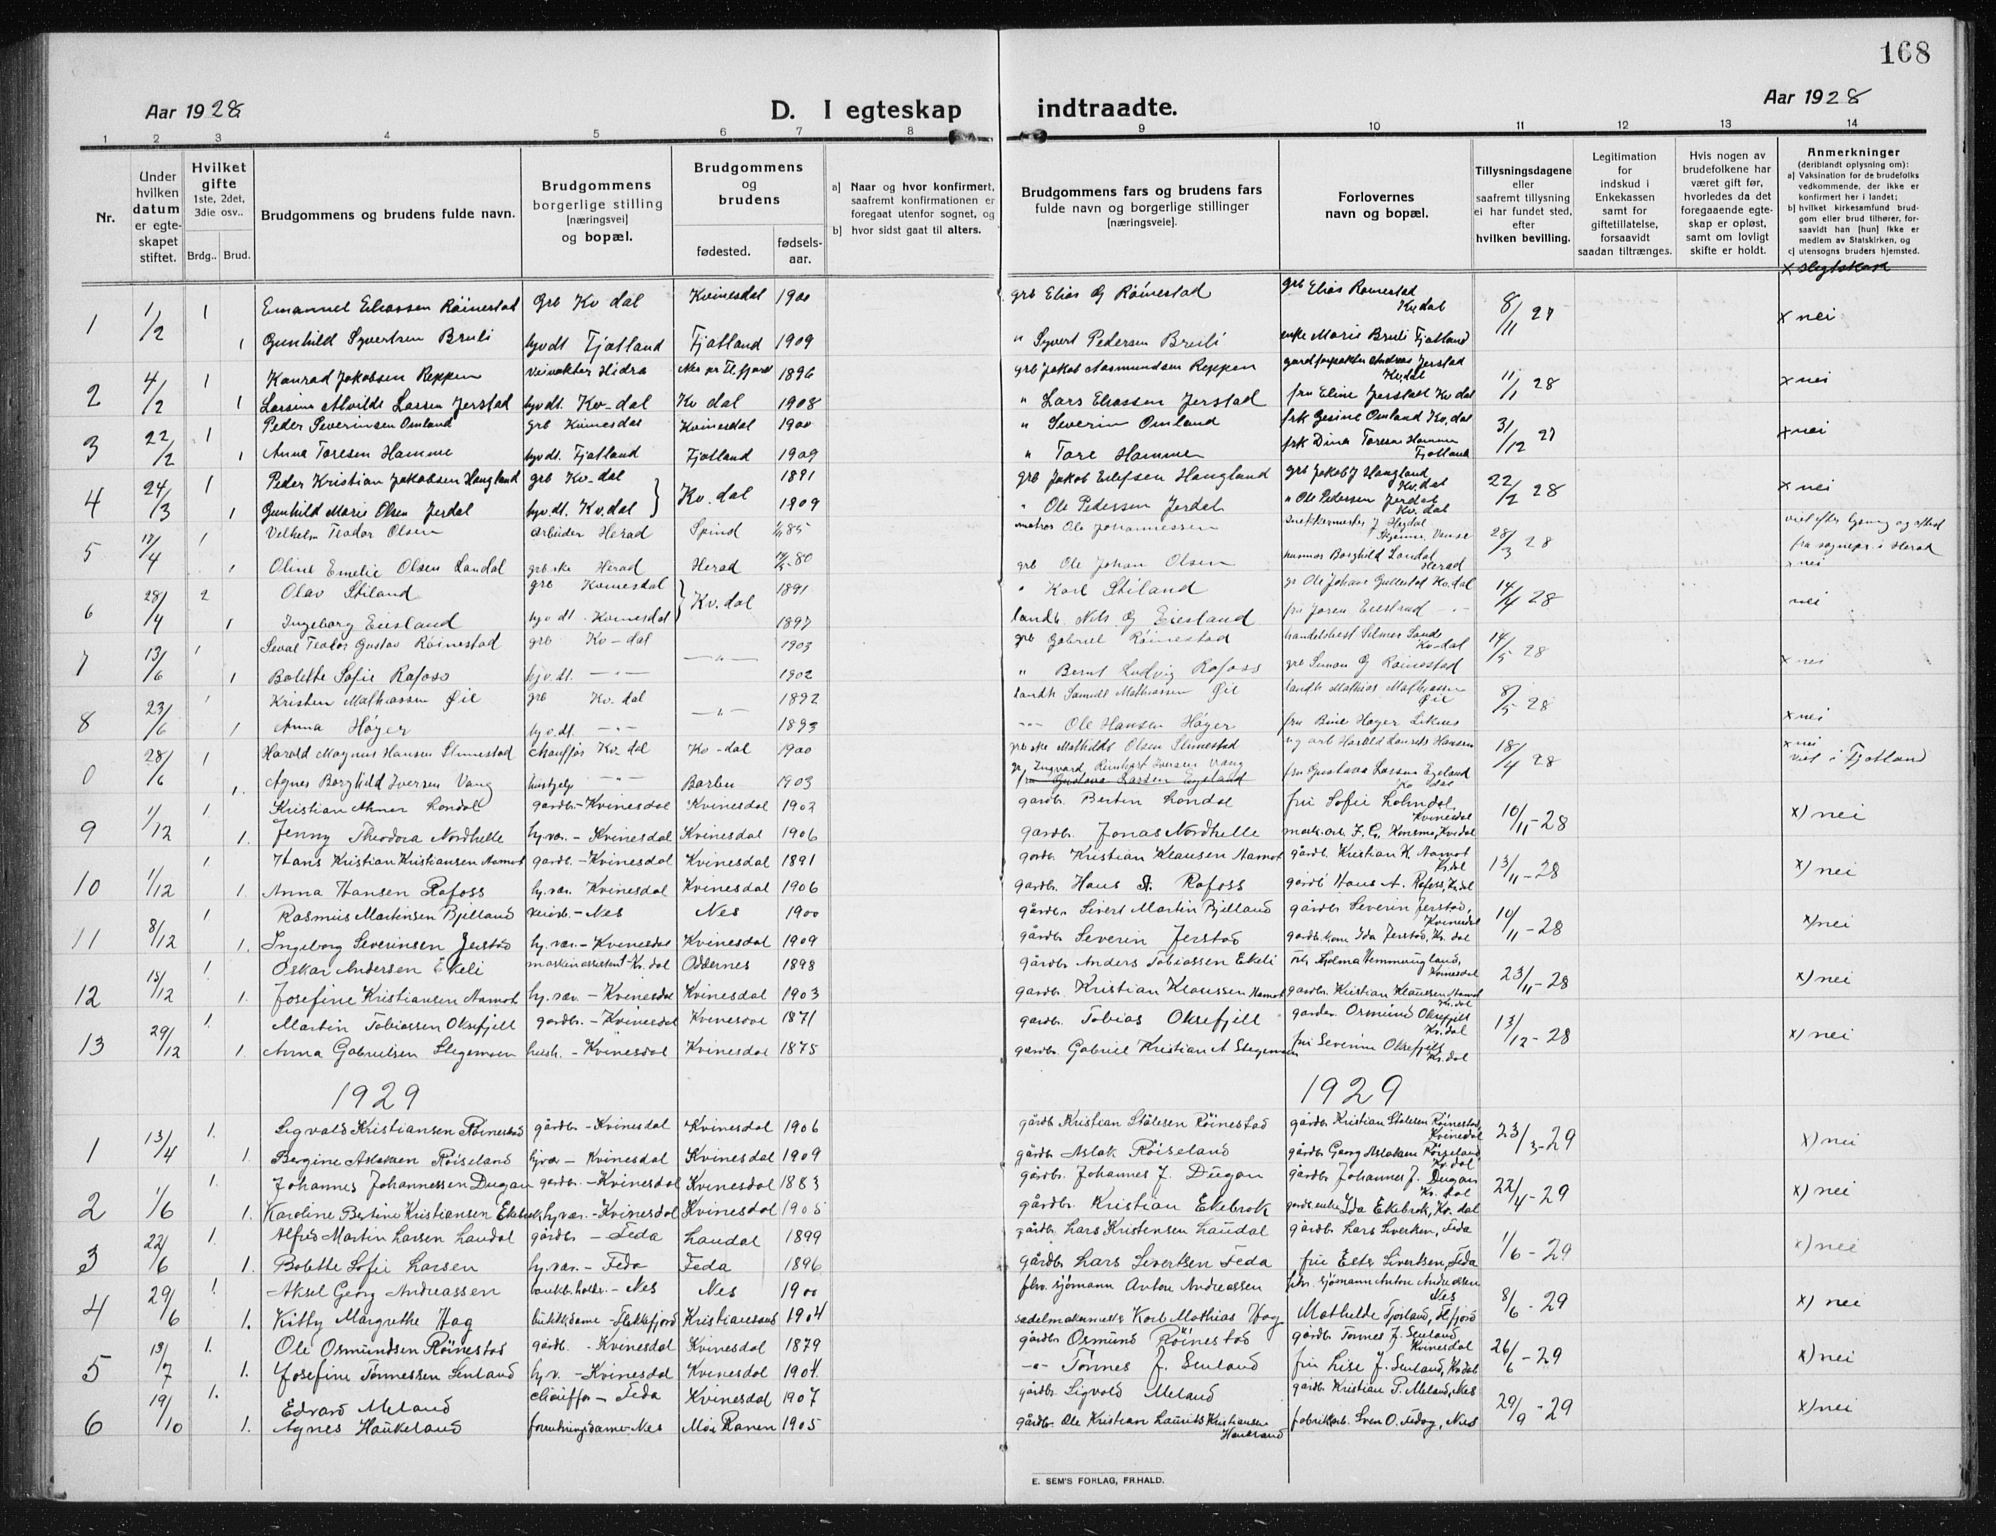 168
Aar 1928
D. I egteskap indtraadte.
Aar 1928
1 2 3 4 5 6 7 8 9 10 11 12 13 14
Nr.
Under hvilken datum er egteskapet stiftet.
Hvilket gifte 1ste, 2det, 3die osv..
Brdg.. Brud.
Brudgommens og brudens fulde navn.
Brudgommens borgerlige stilling [næringsvei] og bopæl.
Brudgommens og brudens
fødested.
fødselsaar.
a) Naar og hvor konfirmert, saafremt konfirmationen er foregaat utenfor sognet, og
b) hvor sidst gaat til alters.
Brudgommens fars og brudens fars fulde navn og borgerlige stillinger [næringsveie].
Forlovernes navn og bopæl.
Tillysningsdagene eller saafremt tillysning ei har fundet sted, efter hvilken bevilling.
Legitimation for indskud i Enkekassen samt for giftetillatelse, forsaavidt saadan tiltrænges.
Hvis nogen av brudefolkene har været gift før, hvorledes da det foregaaende egteskap er opløst, samt om lovlig skifte er holdt.
Anmerkninger (deriblandt oplysning om): a) Vaksination for de brudefolks vedkommende, der ikke er konfirmert her i landet; b) hvilket kirkesamfund brudgom eller brud tilhører, forsaavidt han [hun] ikke er medlem av Statskirken, og c) utensogns bruders hjemsted.
x slegtskap
1 1/2 1 Emanuel Eliassen Röinestad Grb Kv dal Kvinesdal 1900 grb Elias G Röinestad grb Elias Röinestad Kv.dal 8/11 27 x nei
1 Gunhild Syvertsen Bruli hjv dt Fjotland Fjotland 1909 " Syvert Pedersen Bruli enke Marie Bruli Fjotland
2 4/2 1 Konrad Jakobsen Reppen Veivokter Hidra Nes pr Fl.fjord 1896 grb Jakob Aasmundsen Reppen gardforpakter Andreas Jerstad Kv.dal 11/1 28 x nei
1 Larsine Alvilde Larsen Jerstad hjv dt. Kv-dal Kv dal 1908 " Lars Eliassen Jerstad fru Eline Jerstad Kv dal
3 22/2 1 Peder Severinsen Omland grb Kvinesdal Kvinesdal 1900 " Severin Omland frk Gesine Omland Kv.dal 31/12 27 x nei
1 Anna Toresen Hamme hjv dt. Fjotland Fjotland 1909 " Tore Hammen frk Dina Toresen Hamme Fjotland
4 24/3 1 Peder Kristian Jakobsen Haugland grb Kv-dal 1891 grb Jakob Eilefsen Haugland grb Jakob J Haugland Kv.dal 22/2 28 x nei
1 Gunhild Marie Olsen Jerdal hjv.dt. Kv.dal Kv.dal 1909 " Ole Pedersen Jerdal " Ole Pedersen Jerdal Kv. dal
5 17/4 1 Vilhelm Teodor Olsen arbeider Herad Spind 85 matros Ole Johannessen 28/3 28 viet efter lysning og attest fra sognepr. i Herad
1 Oline Emelie Olsen Landal grb.ske Herad Herad 80 grb Ole Johan Olsen Borghild Landal Herad x nei
6 28/4 2 Olav Stiland grb Kvinesdal Kv.dal 1891 " Karl Stiland gr Ole Johan Gullestad Kv.dal 14/4 28 nei
1 Ingeborg Eiesland hjv dt. Kvinesdal 1897 landh. Nils G Eiesland
7 13/6 1 Seval Teodor Gustav Röinestad grb Kv-dal 1903 grb Gabriel Röinestad Kv-dal 14/5 28 x nei
1 Bolette Sofie Rafoss hjv.dt. 1902 " Bernt Ludvig Rafoss grb Simon G Röinestad
8 23/6 1 Kristen Mathiassen Øie grb Kv.dal 1892 landh Samuel Mathiassen Øie landh Mathias Mathiassen Øie 8/5 28
1 Anna Höyer hjv.dt. 1893 Ole Hansen Höyer fru Bine Höyer Liknes x nei
0 28/6 1 Harald Magnus Hansen Slimestad Chauffør Kv. dal Kv-dal 1900 grb ske Mathilde Olsen Slimestad Harald Laurits Hansen 18/4 28 x nei viet i Fjotland
1. Agnes Borghild Iversen Vang hushjelp Barbu 1903 Ingvard Reinhart Iversen Vang fru Gustava Larsen Egeland fru Gustava Larsen Egeland Kv dal
9 1/12 1. Kristian Abner Londal gårdbr.-Kvinesdal Kvinesdal 1902 gardbr. Bertin Londal fru Sofie Lohndal, Kvinesdal 10/11-28 x) nei
1. Jenny Theodora Nordhelle hj.vær. - Kvinesdal Kvinesdal 1906 gardbr. Jonas Nordhelle
10 1/12 1. Hans Kristian Kristiansen Aamot gårdb.-Kvinesdal Kvinesdal 1891 gardbr. Kristian Klausen Aamot gårdb. Kristian K. Aamot Kv.dal 13/11-28 x) nei
1. Anna Hansen Rafoss hj.vær. Kvinesdal Kvinesdal 1906 gardbr. Hans A. Rafoss gårdb Hans A. Rafoss, Kv.dal
11 8/12 1. Rasmus Martinsen Bjelland -Nes Nes 1900 gårdbr. Sivert Martin Bjelland gårdbr Severin Jerstad, Kvinesdal 10/11-28 x) nei
1. Ingeborg Severinsen Jerstad hj. vær. -Kvinesdal Kvinesdal 1909 gårdbr. Severin Jerstad gardb.kone Ida Jerstad, Kv. dal
12 15/12 1. Oskar Andersen Ekeli maskinassistent-Kv.dal Oddernes 1898 gårdbr. Anders Tobiassen Ekeli Kvinesdal 23/11-28 x) nei
1. Josefine Kristiansen Aamot hj.vær. - Kvinesdal Kvinesdal 1903 gardbr. Kristian Klaussen Aamot gardbr. Kristian Klaussen Aamot Kv.dal
13 29/12 1. Martin Tobiassen Oksefjell gårdbr.-Kvinesdal Kvinesdal 1871 gardbr. Tobias Oksefjell gardbr. Osmund Oksefjell Kv.dal 13/12-28 x) nei
1. Anna Gabrielsen Stegemoen -Kvinesdal Kvinesdal 1875 gardbr. Gabriel Kristian A Stegemoen fru Severine Oksefjell Kv.dal
1929 1929
1 13/4 1. Sigvald Kristiansen Röinestad gårdbr-Kvinesdal Kvinesdal 1906 gårdb Kristian Stålesen Röinestad gårdbr. Kristian Stålesen Röinestad, Kvinesdal 23/3-29 x) nei
1. Bergine Aslaksen Röiseland hjvær - Kvinesdal Kvinesdal 1909 gårdbr Aslak Röiseland gårdbr. Georg Aslaksen Röiseland, Kv.dal
2 1/6 1. Johannes Johannessen Dugan gardbr.-Kvinesdal Kvinesdal 1883 gårdbr. Johannes J. Dugan gårdbr. Johannes J. Dugan Kv.dal 22/4-29 x) nei
1. Karoline Bertine Kristiansen Ekebrok hj.vær.-Kvinesdal Kvinesdal 1905 gårdbr. Kristian Ekebrok gards.enke Ida Ekebrok, Kv. dal
3 22/6 1. Alfred Martin Larsen Laudal gårdbr - Feda Laudal 1899 gårdbr. Lars Kristensen Laudal gårdbr Lars Sivertsen, Feda 1/6-29 x) nei
1. Bolette Sofie Larsen hj.vær. - Feda Feda 1896 gårdbr Lars Sivertsen Feda fru Elter Sivertsen, Feda
4 29/6 1. Aksel Georg Andreassen -Nes Nes 1900 fhv. sjömann Anton Andreassen fhv. sjömann Anton Andreassen Nes 8/6-29 x) nei
1. Kitty Margrethe Hag butikkdame-Flekkefjord Kristianssand 1904 sadelmakermester Karl Mathias Hag Mathelde Tjorland, Flfjord
5 13/7 1. Ole Osmundsen Röinestad gårdb. -Kvinesdal Kvinesdal 1879 gårdbr Osmund Röinestad gårdbr Tönnes J. Senland Kvinesdal 26/6-29 x) nei
1. Josefine Tönnessen Senland hj.v. -Kvinesdal Kvinesdal 1904 -"- Tönnes J. Senland fru Lise J. Senland, Kv.dal
6 19/10 1. Edvard Meland chauffør - Feda Kvinesdal 1907 gårdbr. Sigvald Meland gårdbr. Kristian P. Meland, Nes 29/9-29 x) nei
1. Agnes Haukeland forretningsdame-Nes Moi Ranen 1905 gårdbr. Ole Kristian Laurits Kristiansen Haukeland fabrikkarb. Sven O. Fedog, Nes
E. SEM'S FORLAG, FR.HALD.